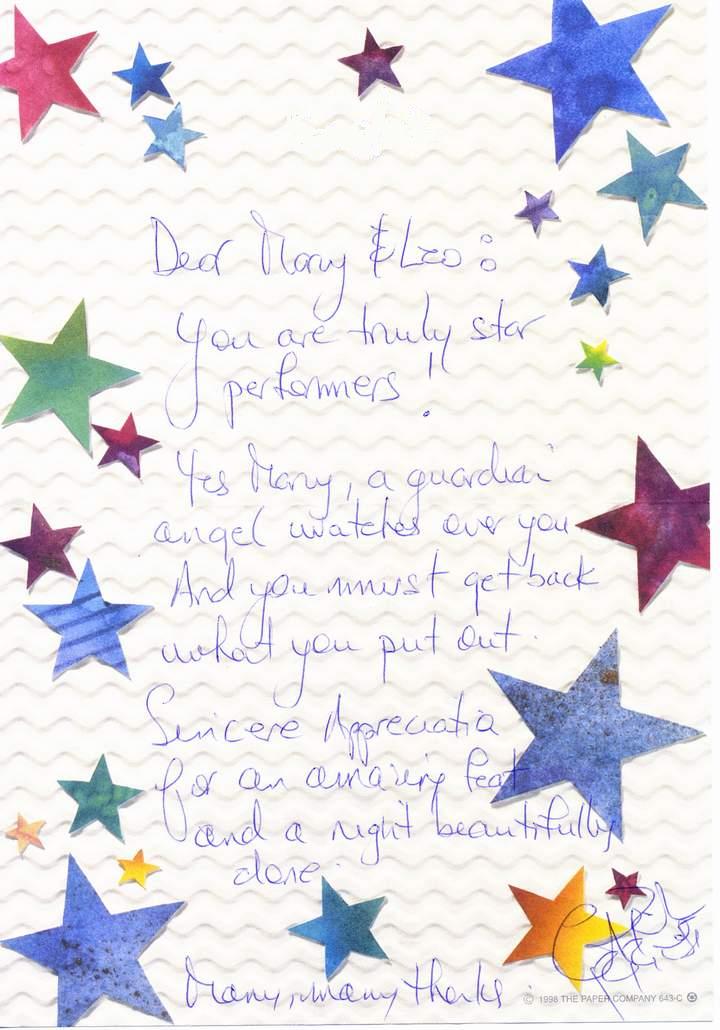 Dear Mary & Leo:
You are truly star
performers!
Yes Mary, a guardian
angel watches over you.
And you must get back
what you put out.
Sincere Appreciation
for an amazing feat
and a night beautifully
done.
Many, many thanks.
© 1998 THE PAPER COMPANY 643-C